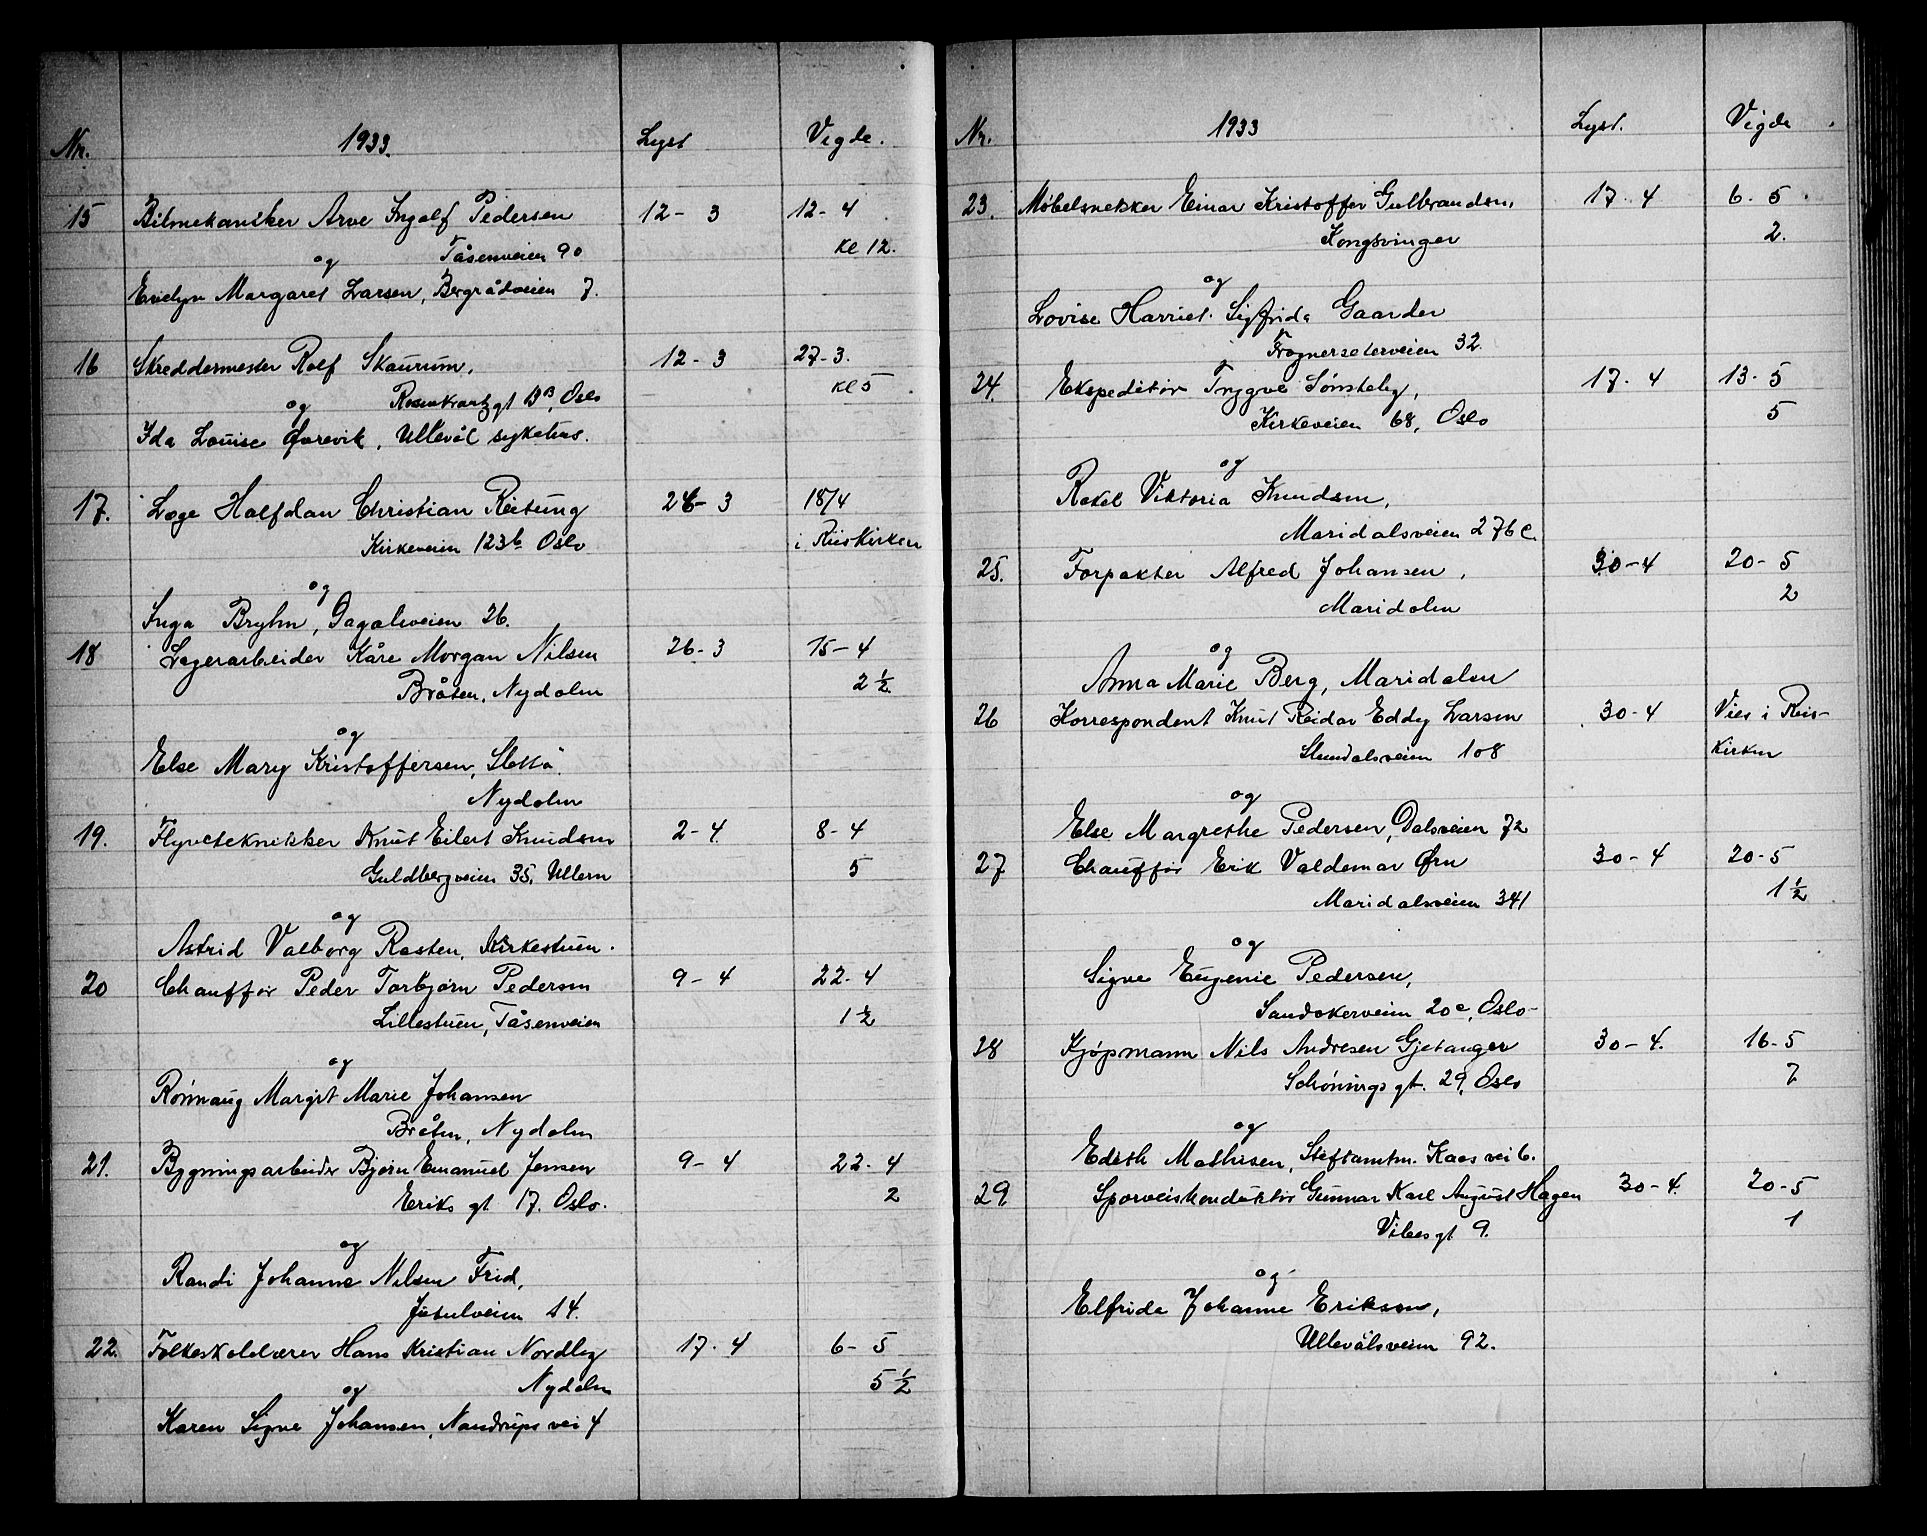 Nr. 1933. Lyst Vigde.
15 Bilmekaniker Arve Ingolf Pedersen 12-3 12-4
Tåsenveien 90 kl 12.
og
Evelyn Margaret Larsen, Bergrådveien 7.
16 Skreddermester Rolf Skaurum, 12-3 27-3.
Rosenkrantzgt , Oslo kl 5
og
Ida Louise Øvrevik, Ullevål sykehus.
17. Læge Halfdan Christian Reitung 26-3 18/4
Kirkeveien 123b Oslo i Riiskirken
og
Inga Bryhn, Dagaliveien 26.
18 Lagerarbeider Kåre Morgan Nilsen 26-3 15-4
Bråten, Nydalen 2½
og
Else Mary Kristoffersen, Sletta
Nydalen
19. Flyvetekniker Knut Eilert Knudsen 2-4 8-4
Guldbergveien 35, Ullern 5
og
Astrid Valborg Rasten, Kirkestuen.
20 Chauffør Peder Torbjørn Pedersen 9-4 22-4
Lillestuen, Tåsenveien 1½
og
Rønnaug Margit Marie Johansen
Bråten, Nydalen
21. Bygningsarbeider Bjørn Emanuel Jensen 9-4 22-4
Eriks gt 17. Oslo. 2
og
Randi Johanne Nilsen Frid,
Jutulveien 14.
22. Folkeskolelærer Hans Kristian Nordby 17-4 6-5
Nydalen 5½
og
Karen Signe Johansen, Nandrups vei 4
Nr. 1933 Lyst. Vigde
23. Møbelsnekker Einar Kristoffer Gulbrandsen, 17-4 6-5
Kongsvinger 2.
og
Lovise Harriet Sigfrida Gaarder
Frognerseterveien 32.
24. Ekspeditør Trygve Sønsteby, 17-4 13-5
Kirkeveien 68, Oslo 5
og
Rakel Viktoria Knudsen,
Maridalsveien 276c.
25. Forpakter Alfred Johansen, 30-4 20-5
Maridalen 2
og
Anna Marie Berg, Maridalen
26 Korrespondent Knut Reidar Eddy Larsen 30-4 Vies i Riis-
Slemdalsveien 108 kirken
og
Else Margrethe Pedersen, Dalsveien 72
27 Chauffør Erik Valdemar Ørn 30-4 20-5
Maridalsveien 341 1½
og
Signe Eugenie Pedersen,
Sandakerveien 20c, Oslo-
28 Kjøpmann Nils Andresen Gjetanger 30-4. 16-5
Schønings gt. 29, Oslo 7
og
Edith Mathisen, Stiftamtm. Kaas vei 6.
29 Sporveiskonduktør Gunnar Karl August Hagen 30-4. 20-5
Vibes gt 9. 1
og
Elfride Johanne Eriksen,
Ullevålsveien 92.